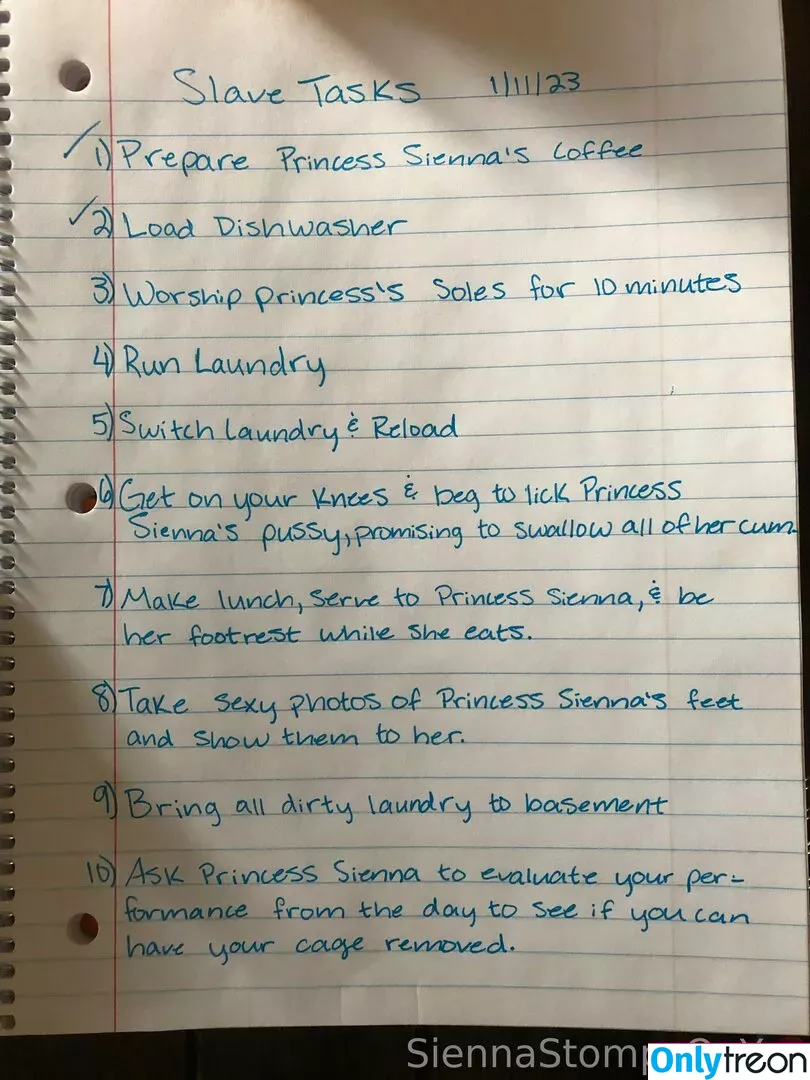 Slave Tasks 1/11/23
1) Prepare Princess Sienna's Coffee
2) Load Dishwasher
3) Worship princess's Soles for 10 minutes
4) Run Laundry
5) Switch Laundry & Reload
6) Get on your Knees & beg to lick Princess
Sienna's pussy, promising to swallow all of her cum
7) Make lunch, serve to Princess Sienna, & be
her footrest while she eats.
8) Take sexy photos of Princess Sienna's feet
and show them to her.
9) Bring all dirty laundry to basement
10) Ask Princess Sienna to evaluate your per-
formance from the day to see if you can
have your cage removed.
SiennaStomp
Onlytreon